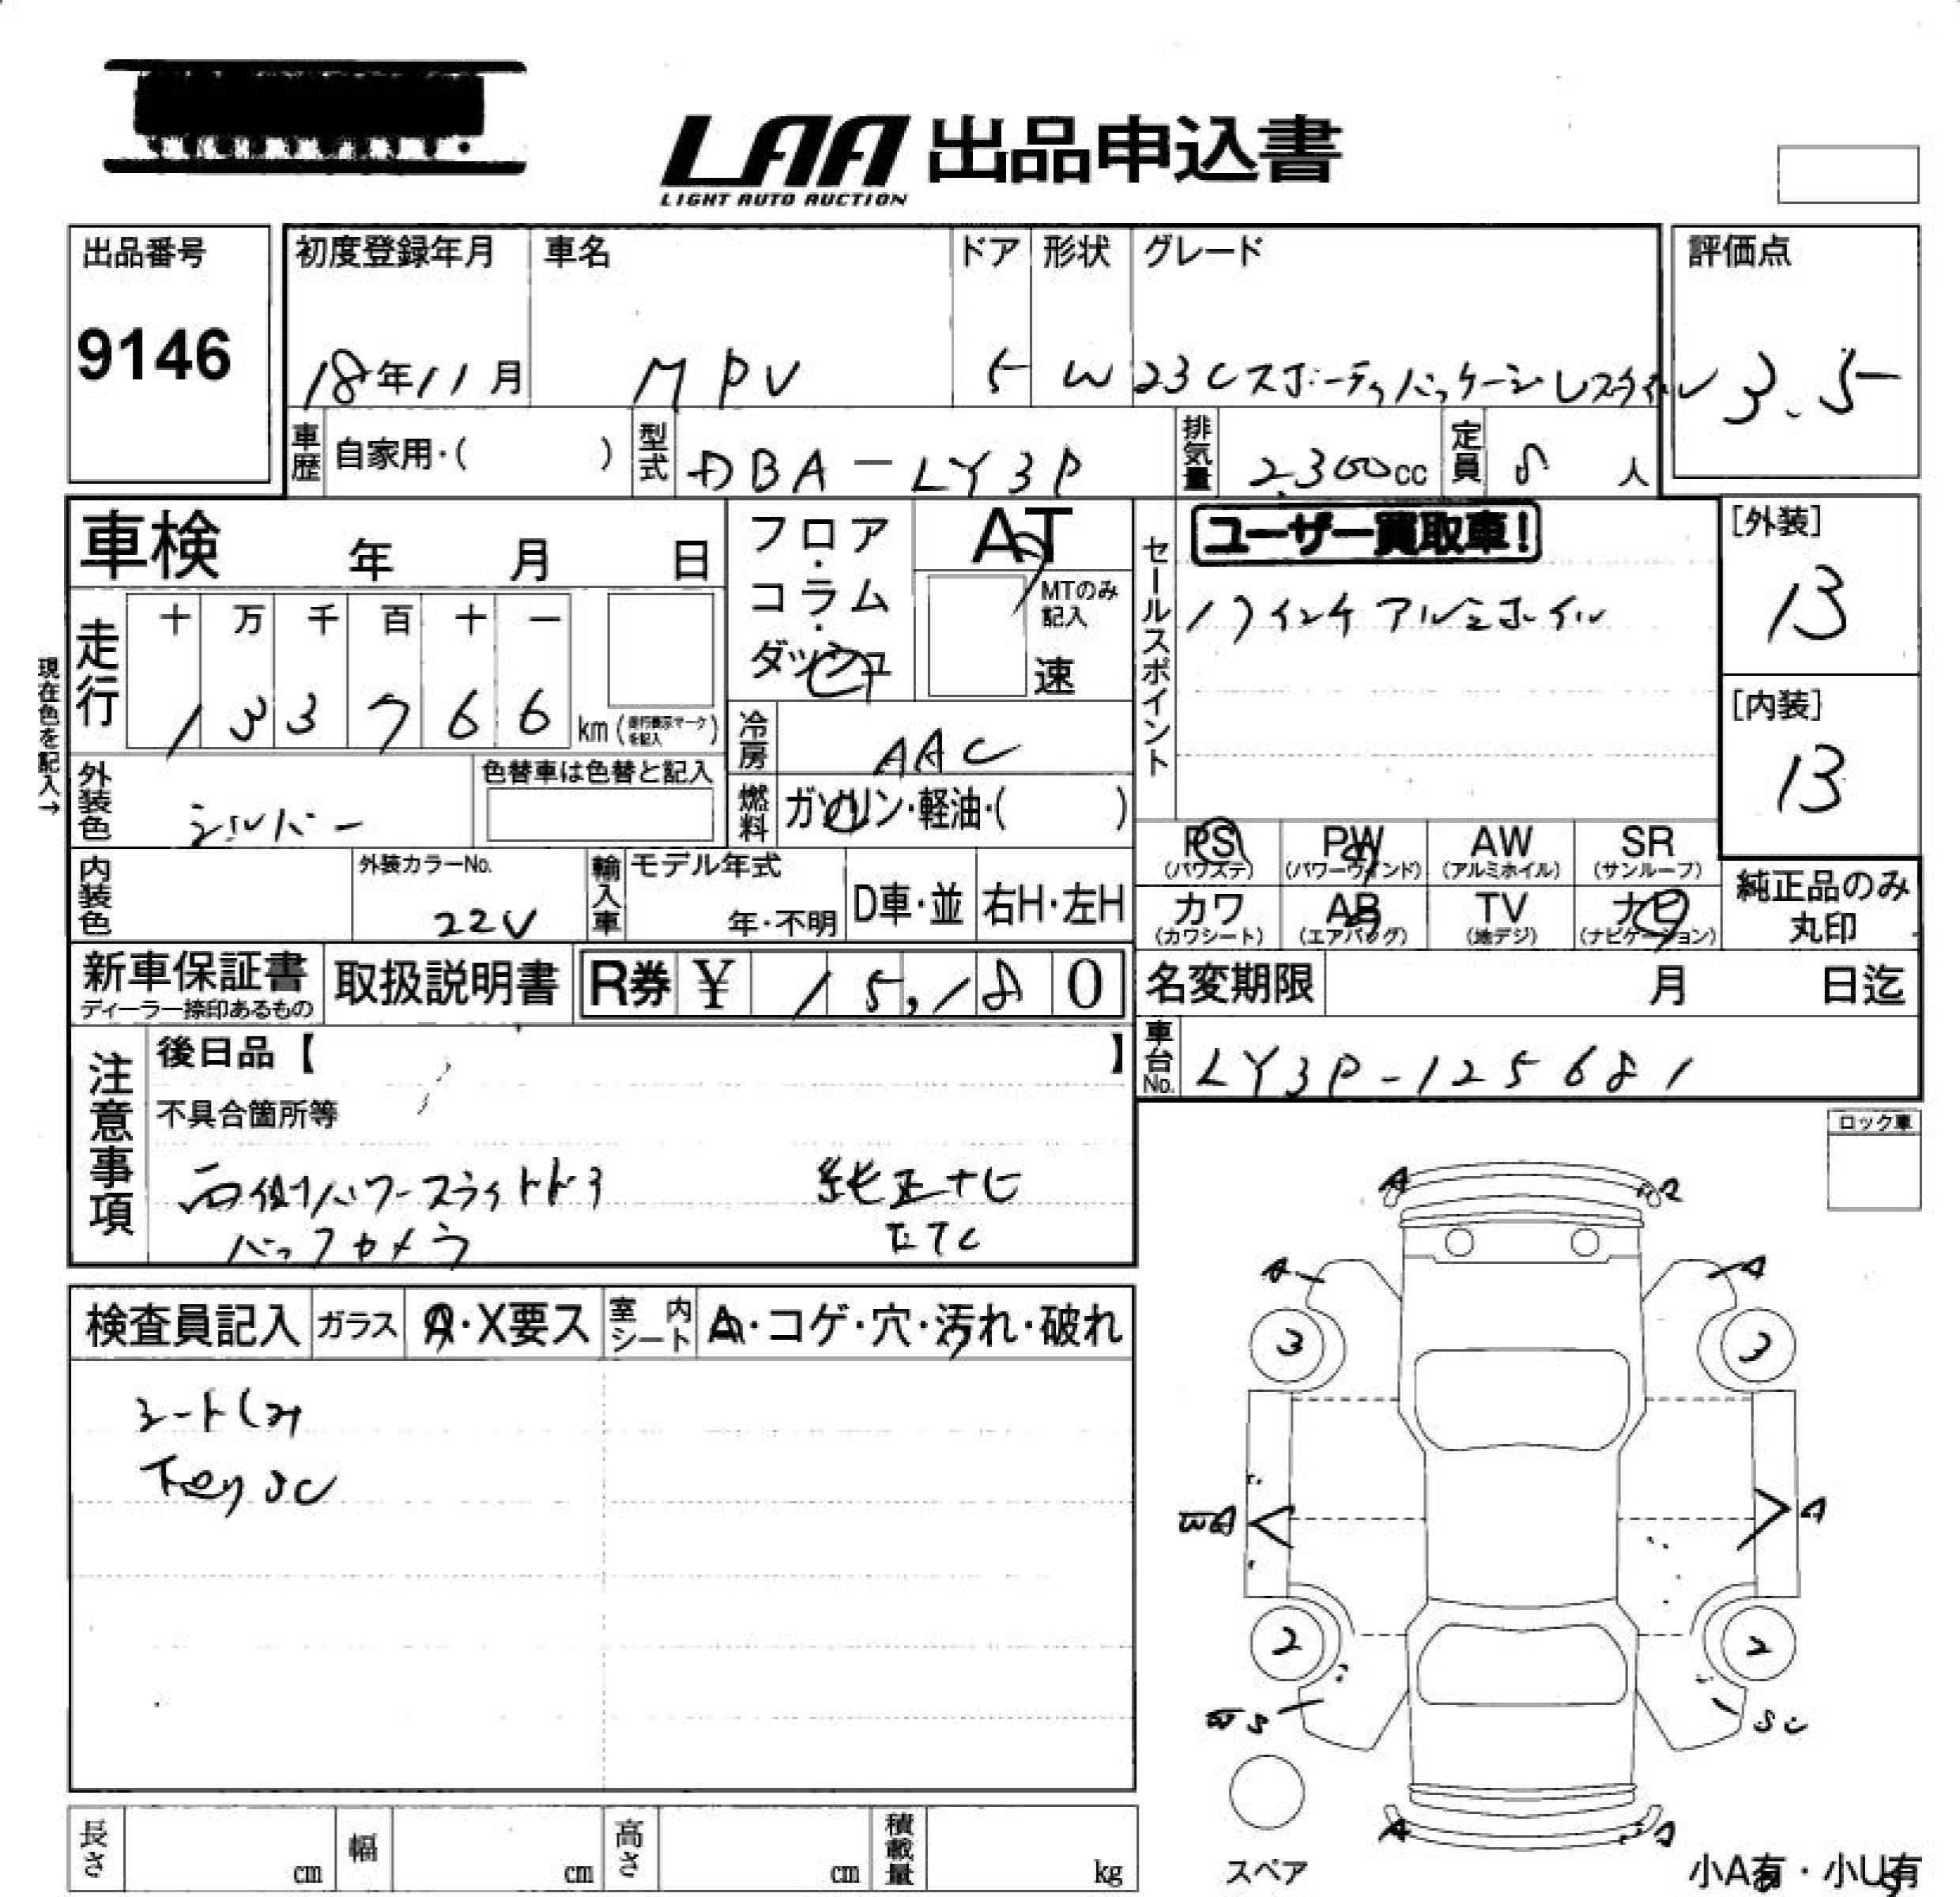 LAA 出品申込書
LIGHT AUTO AUCTION
出品番号
9146
初度登録年月 車名 ドア 形状 グレード 評価点
18年11月 MPV 5 W 23C スポーティパッケージ 3.5
車歴 自家用・( ) 型式 DBA-LY3P 排気量 2,300cc 定員 8人
車検 年 月 日
フロア・コラム・ダッシュ
AT
MTのみ記入
速
セールスポイント
ユーザー買取車!
17インチアルミホイル
[外装]
13
[内装]
13
現在色を記入→
走行 十 万 千 百 十 一
1 3 3 7 6 6 km(走行表示マークを記入)
冷房 AAC
外装色 シルバー 色替車は色替と記入
燃料 ガソリン・軽油・( )
PS PW AW SR
(パワステ) (パワーウィンド) (アルミホイル) (サンルーフ)
カワ AB TV ナビ
(カワシート) (エアバッグ) (地デジ) (ナビゲーション)
純正品のみ丸印
内装色 外装カラーNo. 22V 輸入車 モデル年式 年・不明 D車・並 右H・左H
新車保証書 取扱説明書 R券 ¥ 15,180
ディーラー捺印あるもの
名変期限 月 日迄
車台No. LY3P-125681
注意事項
後日品【 】
不具合箇所等
両側パワースライドドア 純正ナビ
バックカメラ ETC
ロック車
検査員記入 ガラス A・X要ス 室内シート A・コゲ・穴・汚れ・破れ
シートしみ
下回りSC
A
A A
3 3
A A
2 2
S SC
A
スペア
長さ cm 幅 cm 高さ cm 積載量 kg
小A有・小U有